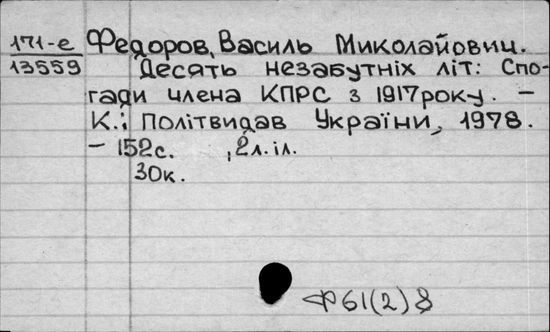 171-е Федоров, Василь Миколайович.
13559 Десять незабутніх літ: Спо-
гади члена КПРС з 1917 року. –
К.: Політвидав України, 1978.
– 152с. , 2л. іл.
30к.
Ф61(2)8